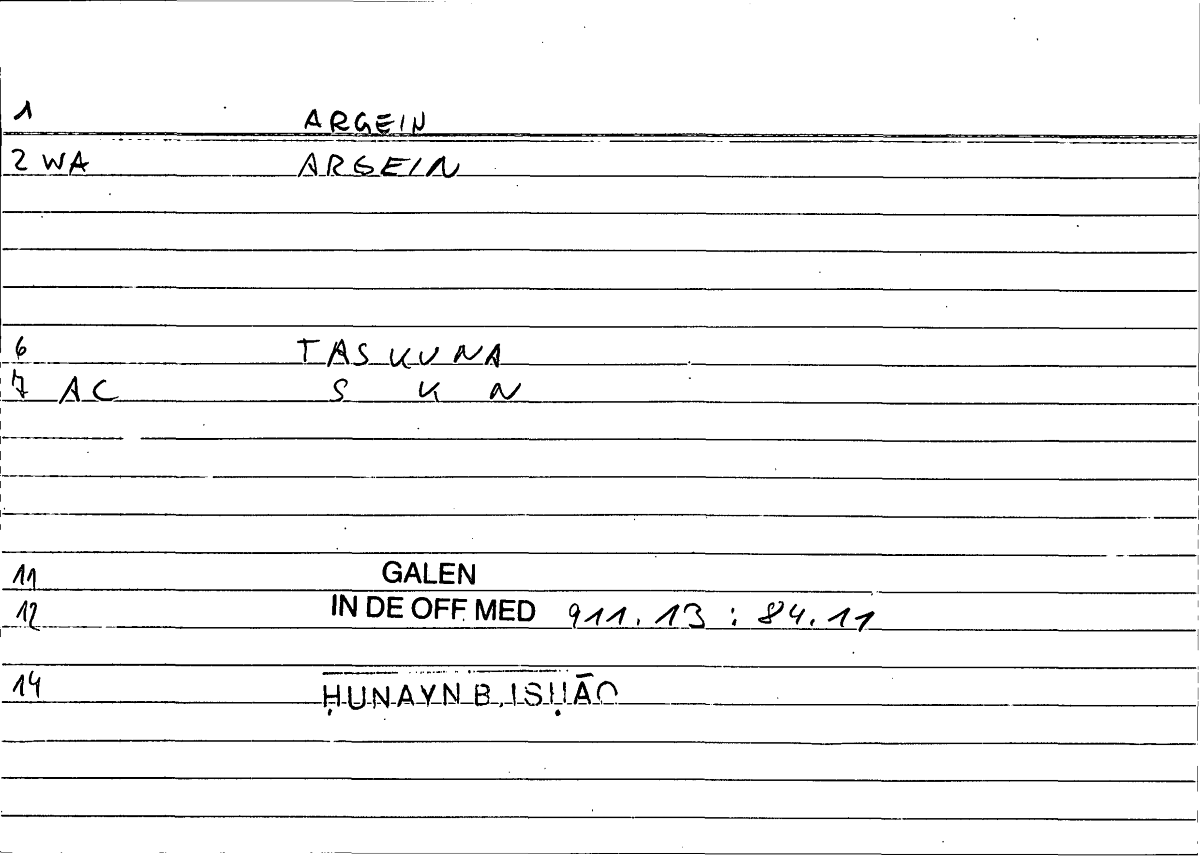 1 ARGEIN
2 WA ARGEIN
6 TASKUNA
7 AC S K N
11 GALEN
12 IN DE OFF. MED 911.13 : 84.11
14 ḤUNAYN B. ISḤĀQ